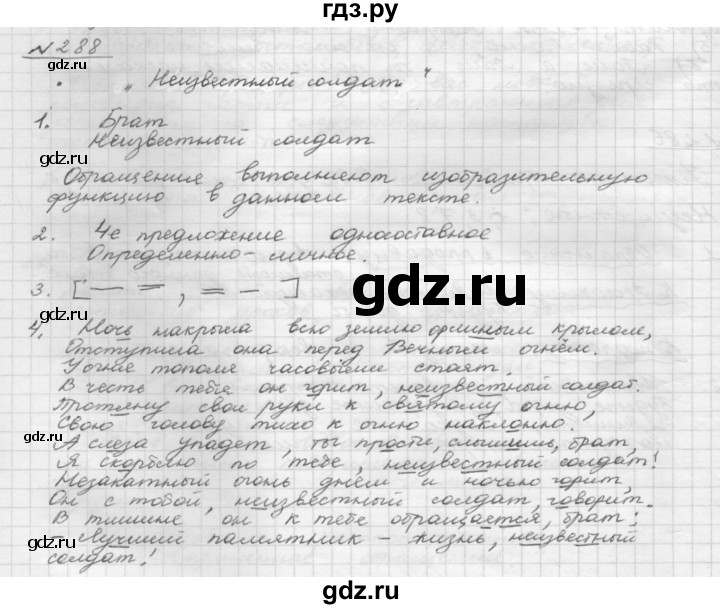 гдз.ру
№288
„Неизвестный солдат"
1. Брат
Неизвестный солдат
Обращения выполняют изобразительную
функцию в данном тексте.
2. 4е предложение односоставное
Определенно-личное.
3. [— =, = —]
4. Ночь накрыла всю землю орлиным крылом,
Отступила она перед Вечным огнём.
У огня тополя часовыми стоят.
В честь тебя он горит, неизвестный солдат.
Протяну свои руки к святому огню,
Свою голову тихо к огню наклоню.
А слеза упадет, ты прости, слышишь, брат,
Я скорблю по тебе, неизвестный солдат!
Незакатный огонь днём и ночью горит,
Он с тобой, неизвестный солдат, говорит.
В тишине он к тебе обращается, брат:
- Лучший памятник - жизнь, неизвестный
солдат!
gdz.ru
gdz.ru
gdz.ru
gdz.ru
gdz.ru
gdz.ru
gdz.ru
gdz.ru
gdz.ru
gdz.ru
gdz.ru